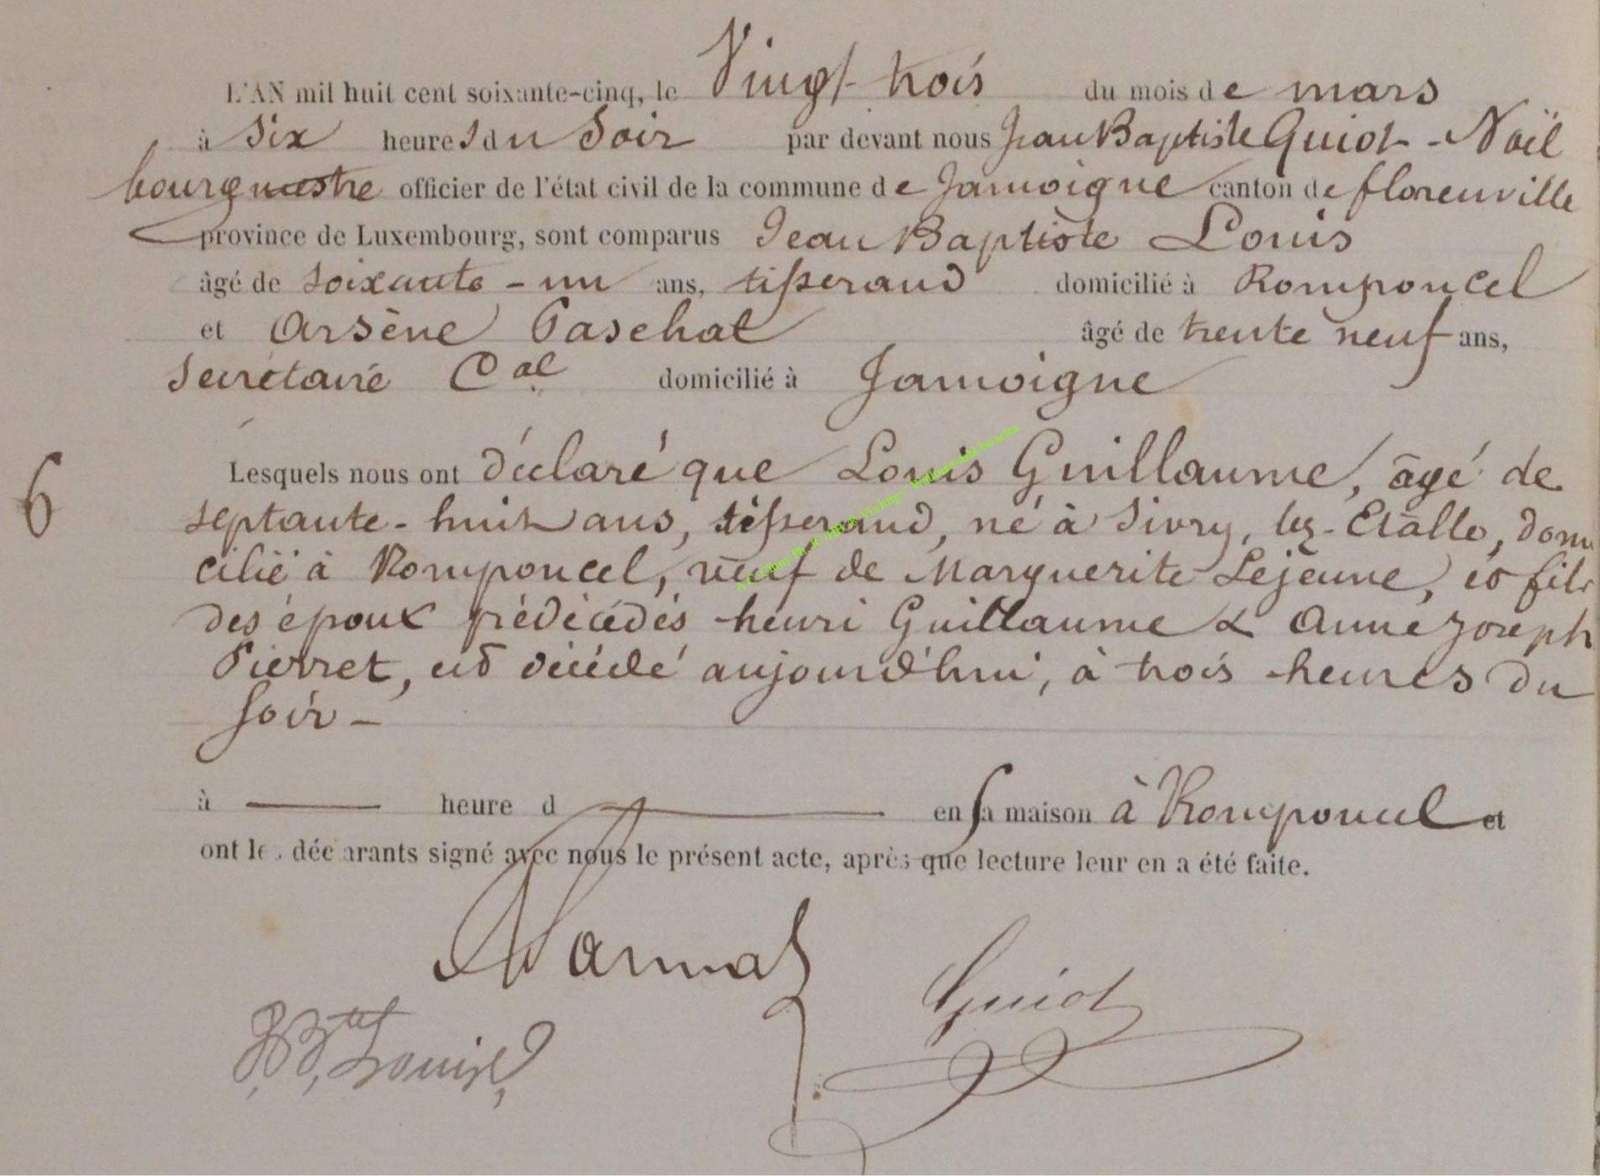 L'AN mil huit cent soixante-cinq, le Vingt-trois du mois de mars
à Six heures du Soir par devant nous Jean Baptiste Guiot-Noël
bourgmestre officier de l'état civil de la commune de Jamoigne canton de florenville
province de Luxembourg, sont comparus Jean Baptiste Louis
âgé de soixante-un ans, tisserand domicilié à Romponcel
et Arsène Paschal âgé de trente neuf ans,
Secrétaire Cal domicilié à Jamoigne
6
Lesquels nous ont déclaré que Louis Guillaume, âgé de
septante-huit ans, tisserand, né à Sivry, lez-Etalle, domi
cilié à Romponcel, veuf de Marguerite Lejeune, et fils
des époux prédécédés henri Guillaume & Anne Joseph
Pierret, est décédé aujourd'hui, à trois heures du
soir -
à heure d en sa maison à Romponcel et
ont les déclarants signé avec nous le présent acte, après que lecture leur en a été faite.
Guiot
J. Bte Louis